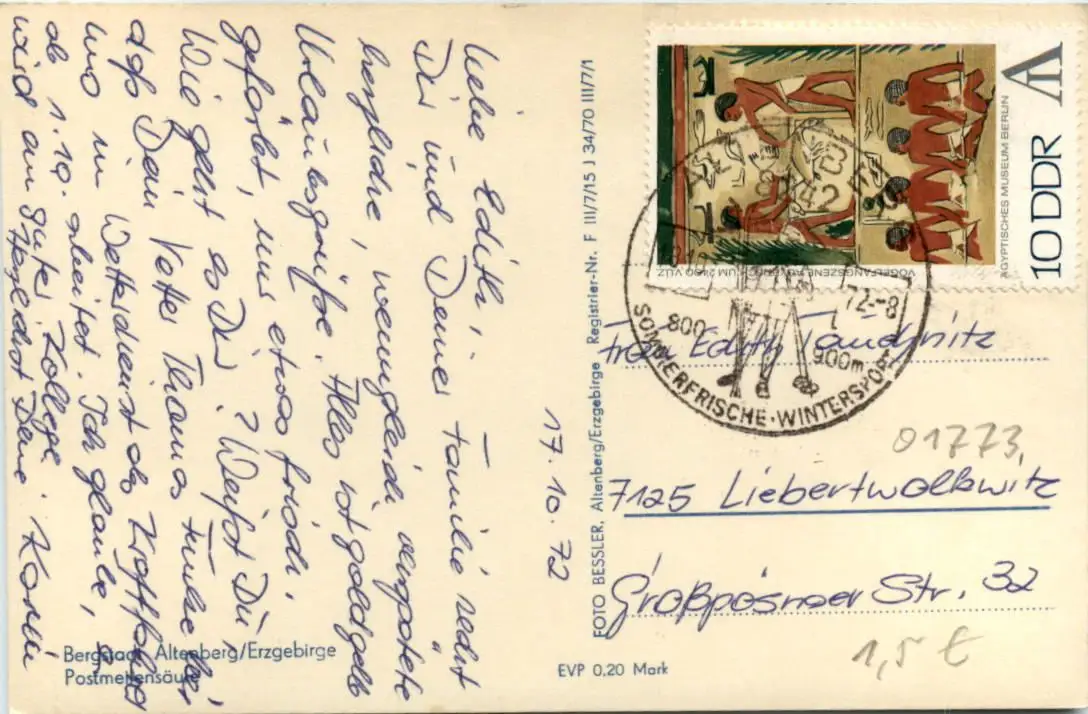 Liebe Edith,
Dir und Deiner Familie recht
herzliche, wenngleich verspätete
Urlaubsgrüße. Alles ist goldgelb
gefärbt, nur etwas frisch.
Wie geht es Dir? Weißt Du,
daß Dein Vetter Thomas Funke bei
uns im Wetterdienst als Kraftfahrer
ab 1.10. arbeitet. Ich glaube, es
wird ein guter Kollege
Herzlichst Deine Karin
17.10.72
Bergstadt Altenberg/Erzgebirge
Postmeilensäule
EVP 0,20 Mark
FOTO BESSLER, Altenberg/Erzgebirge Registrier-Nr. F III/7/15 J 34/70 III/7/1
10 DDR
ÄGYPTISCHES MUSEUM BERLIN
VOGELFANGSZENE AUS UM 2400 V.U.Z.
8242
72-8
800
900m
SOMMERFRISCHE · WINTERSPORT
Frau Edith Tauchnitz
01773
7125 Liebertwolkwitz
Großpösnaer Str. 32
1,5 €